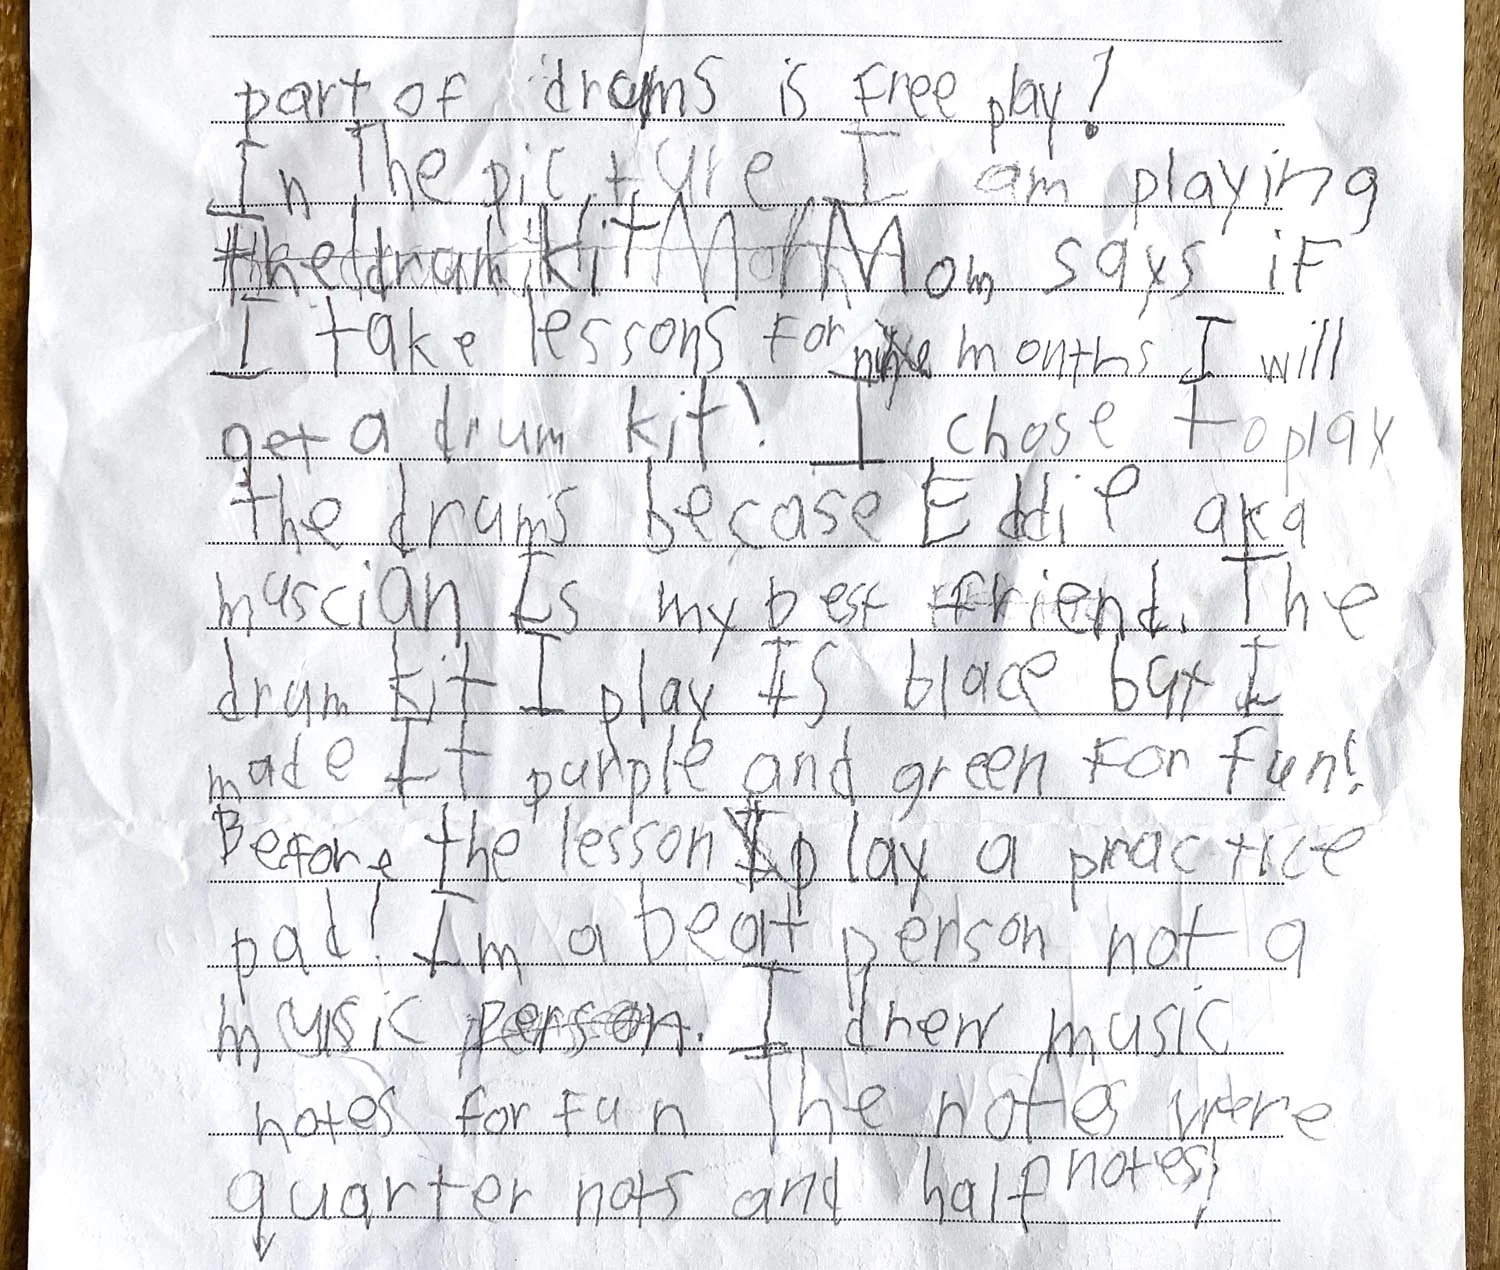 part of drums is free play!
In The picture I am playing
the drum kit Mom says if
I take lessons for nine months I will
get a drum kit! I chose to play
the drums becase Eddie aka
muscian Is my best friend. The
drum kit I play IS blace but I
made It purple and green for fun!
Before the lesson I play a practice
pad! Im a beat person not a
music person. I drew music
notes for fun The notes were
quarter nots and half notes!